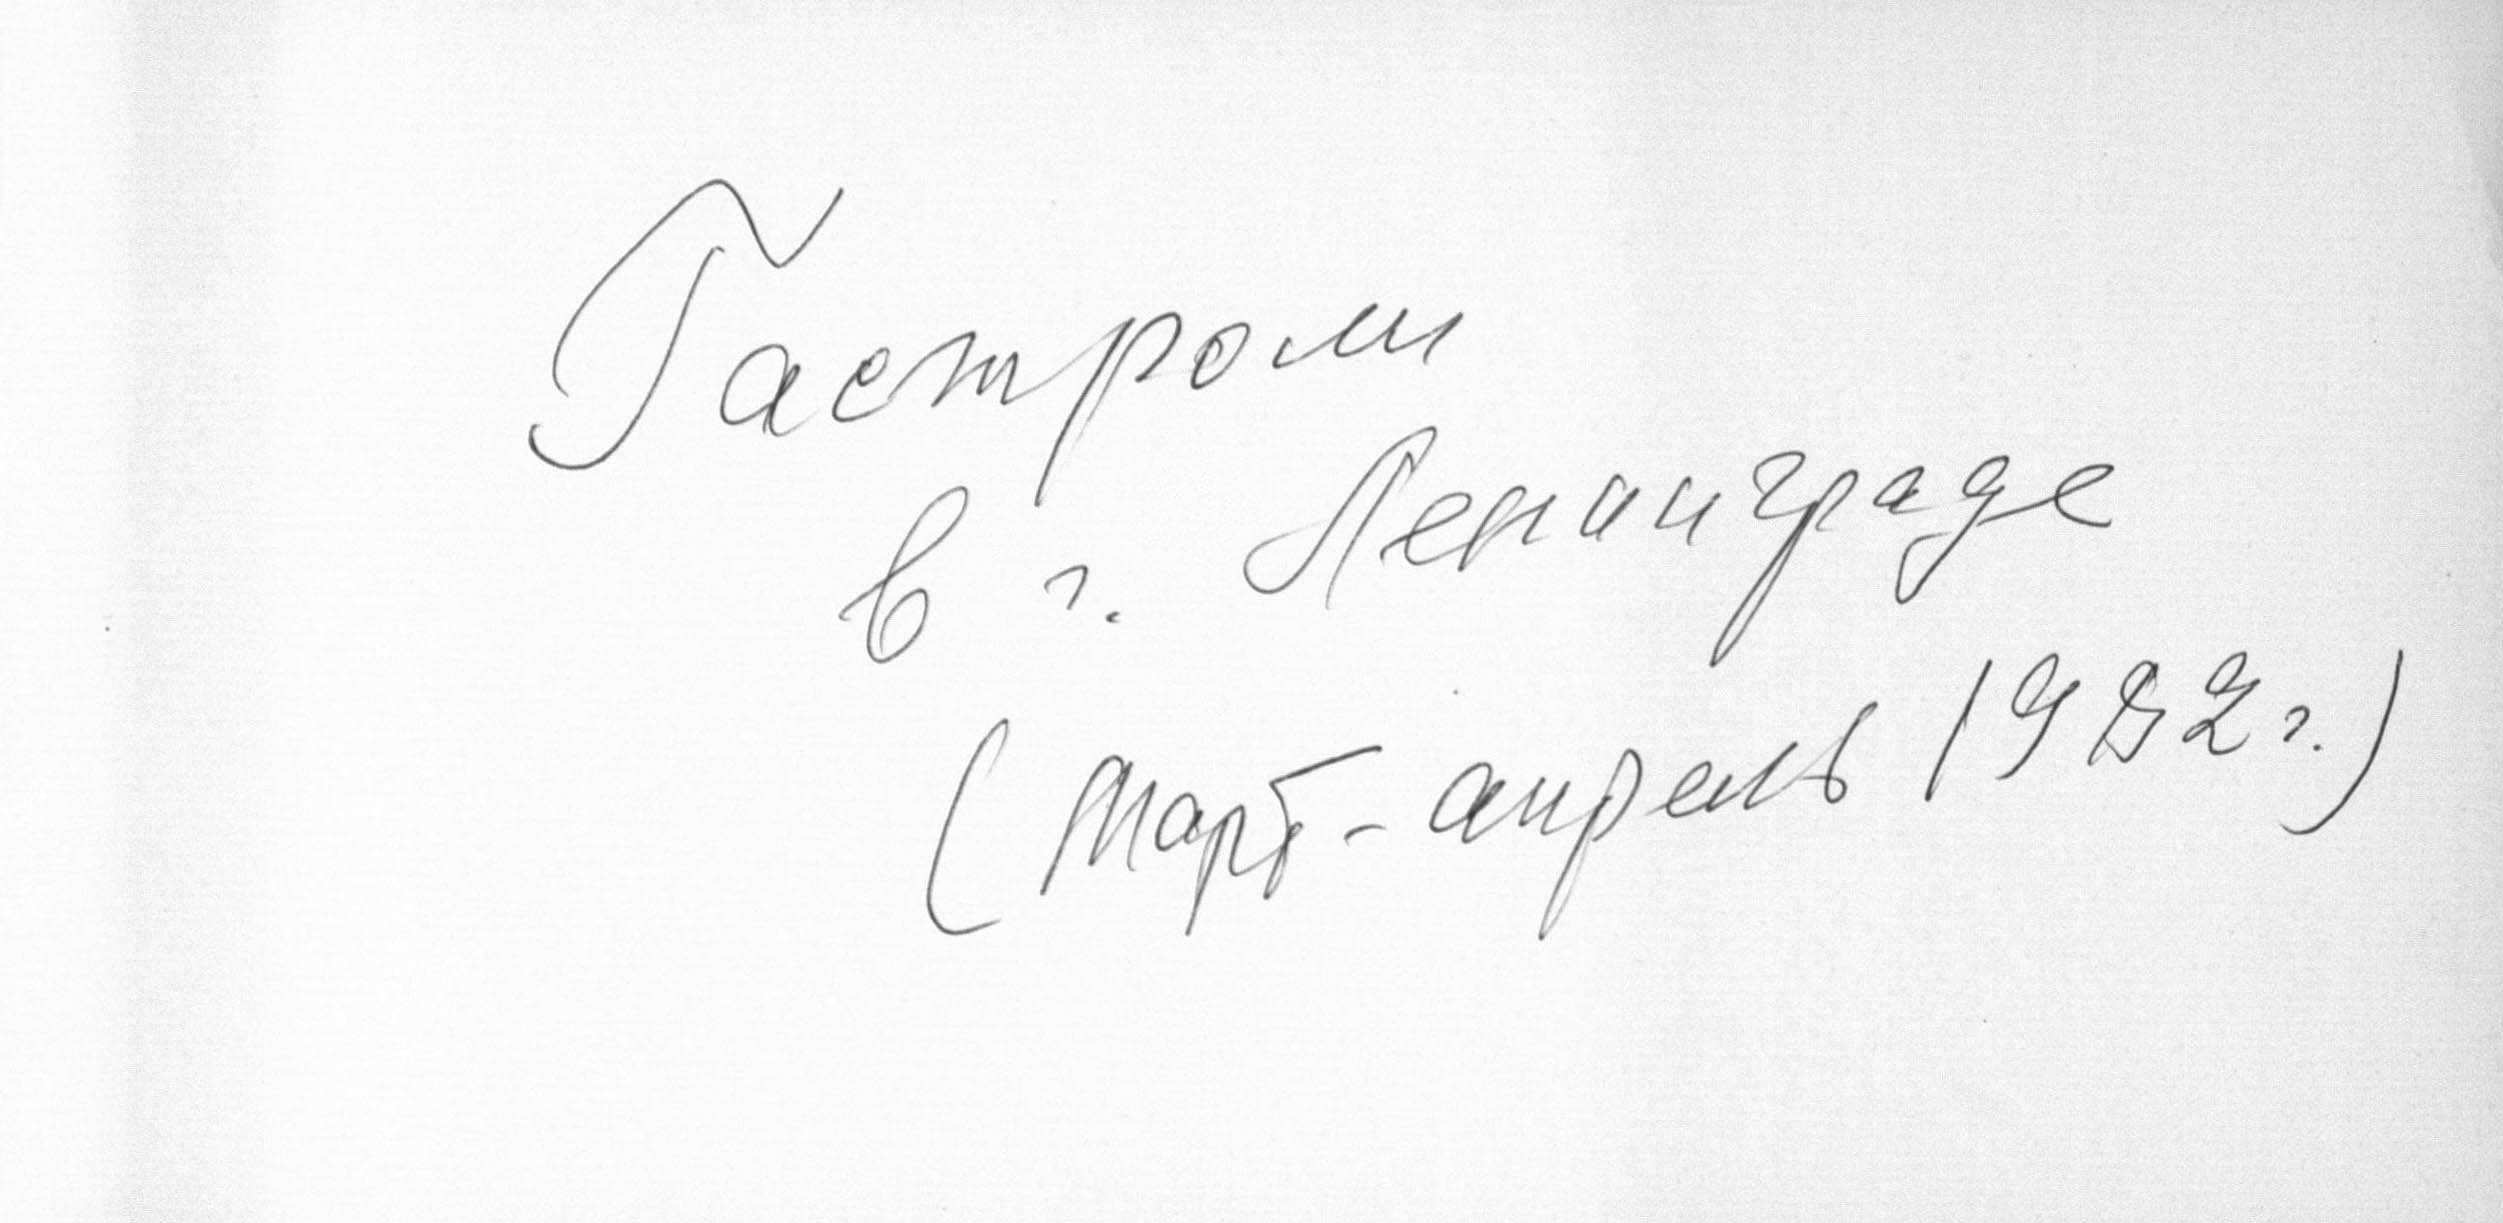 Гастроли
в г. Ленинграде
(март-апрель 1982 г.)